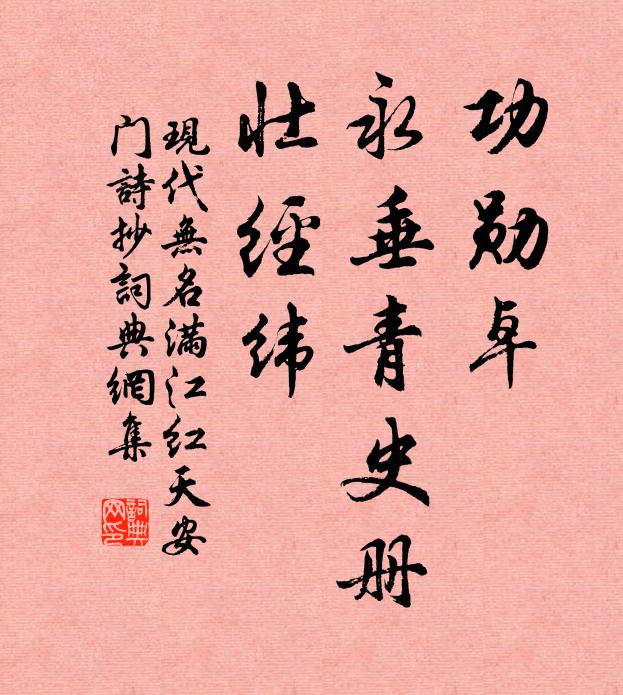 功勋卓
永垂青史册
壮經纬
現代無名满江红天安
门詩抄詞典網集
詞典
网印